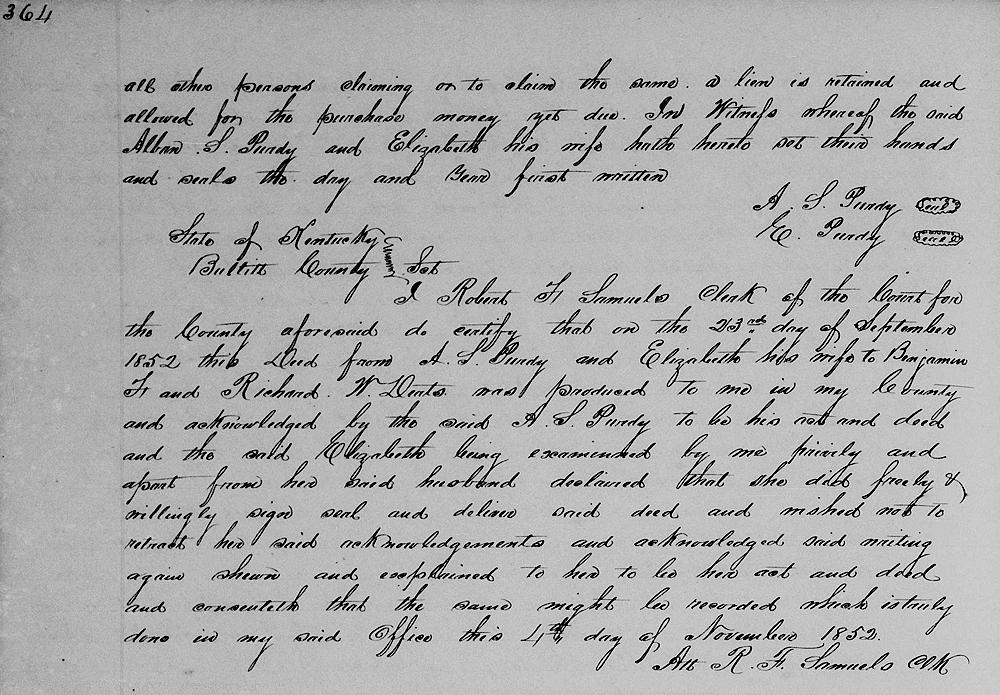 364
all other persons claiming or to claim the same. a lien is retained and
allowed for the purchase money yet due. In Witness whereof the said
Alban. S. Purdy and Elizabeth his wife hath hereto set their hands
and seals the day and year first written
A. S. Purdy Seal
E. Purdy Seal
State of Kentucky
Bullitt County Sct
I Robert F. Samuels Clerk of the Court for
the County aforesaid do certify that on the 23rd day of September
1852 this Deed from A. S. Purdy and Elizabeth his wife to Benjamin
F and Richard. W. Deats was produced to me in my County
and acknowledged by the said A. S. Purdy to be his act and deed
and the said Elizabeth being examinned by me privily and
apart from her said husband declaired that she did freely &
willingly sign seal and deliver said deed and wished not to
retract her said acknowledgements and acknowledged said writing
again shewn and explained to her to be her act and deed
and consenteth that the same might be recorded which is truly
done in my said Office this 4th day of November 1852.
Att R. F. Samuels Clk